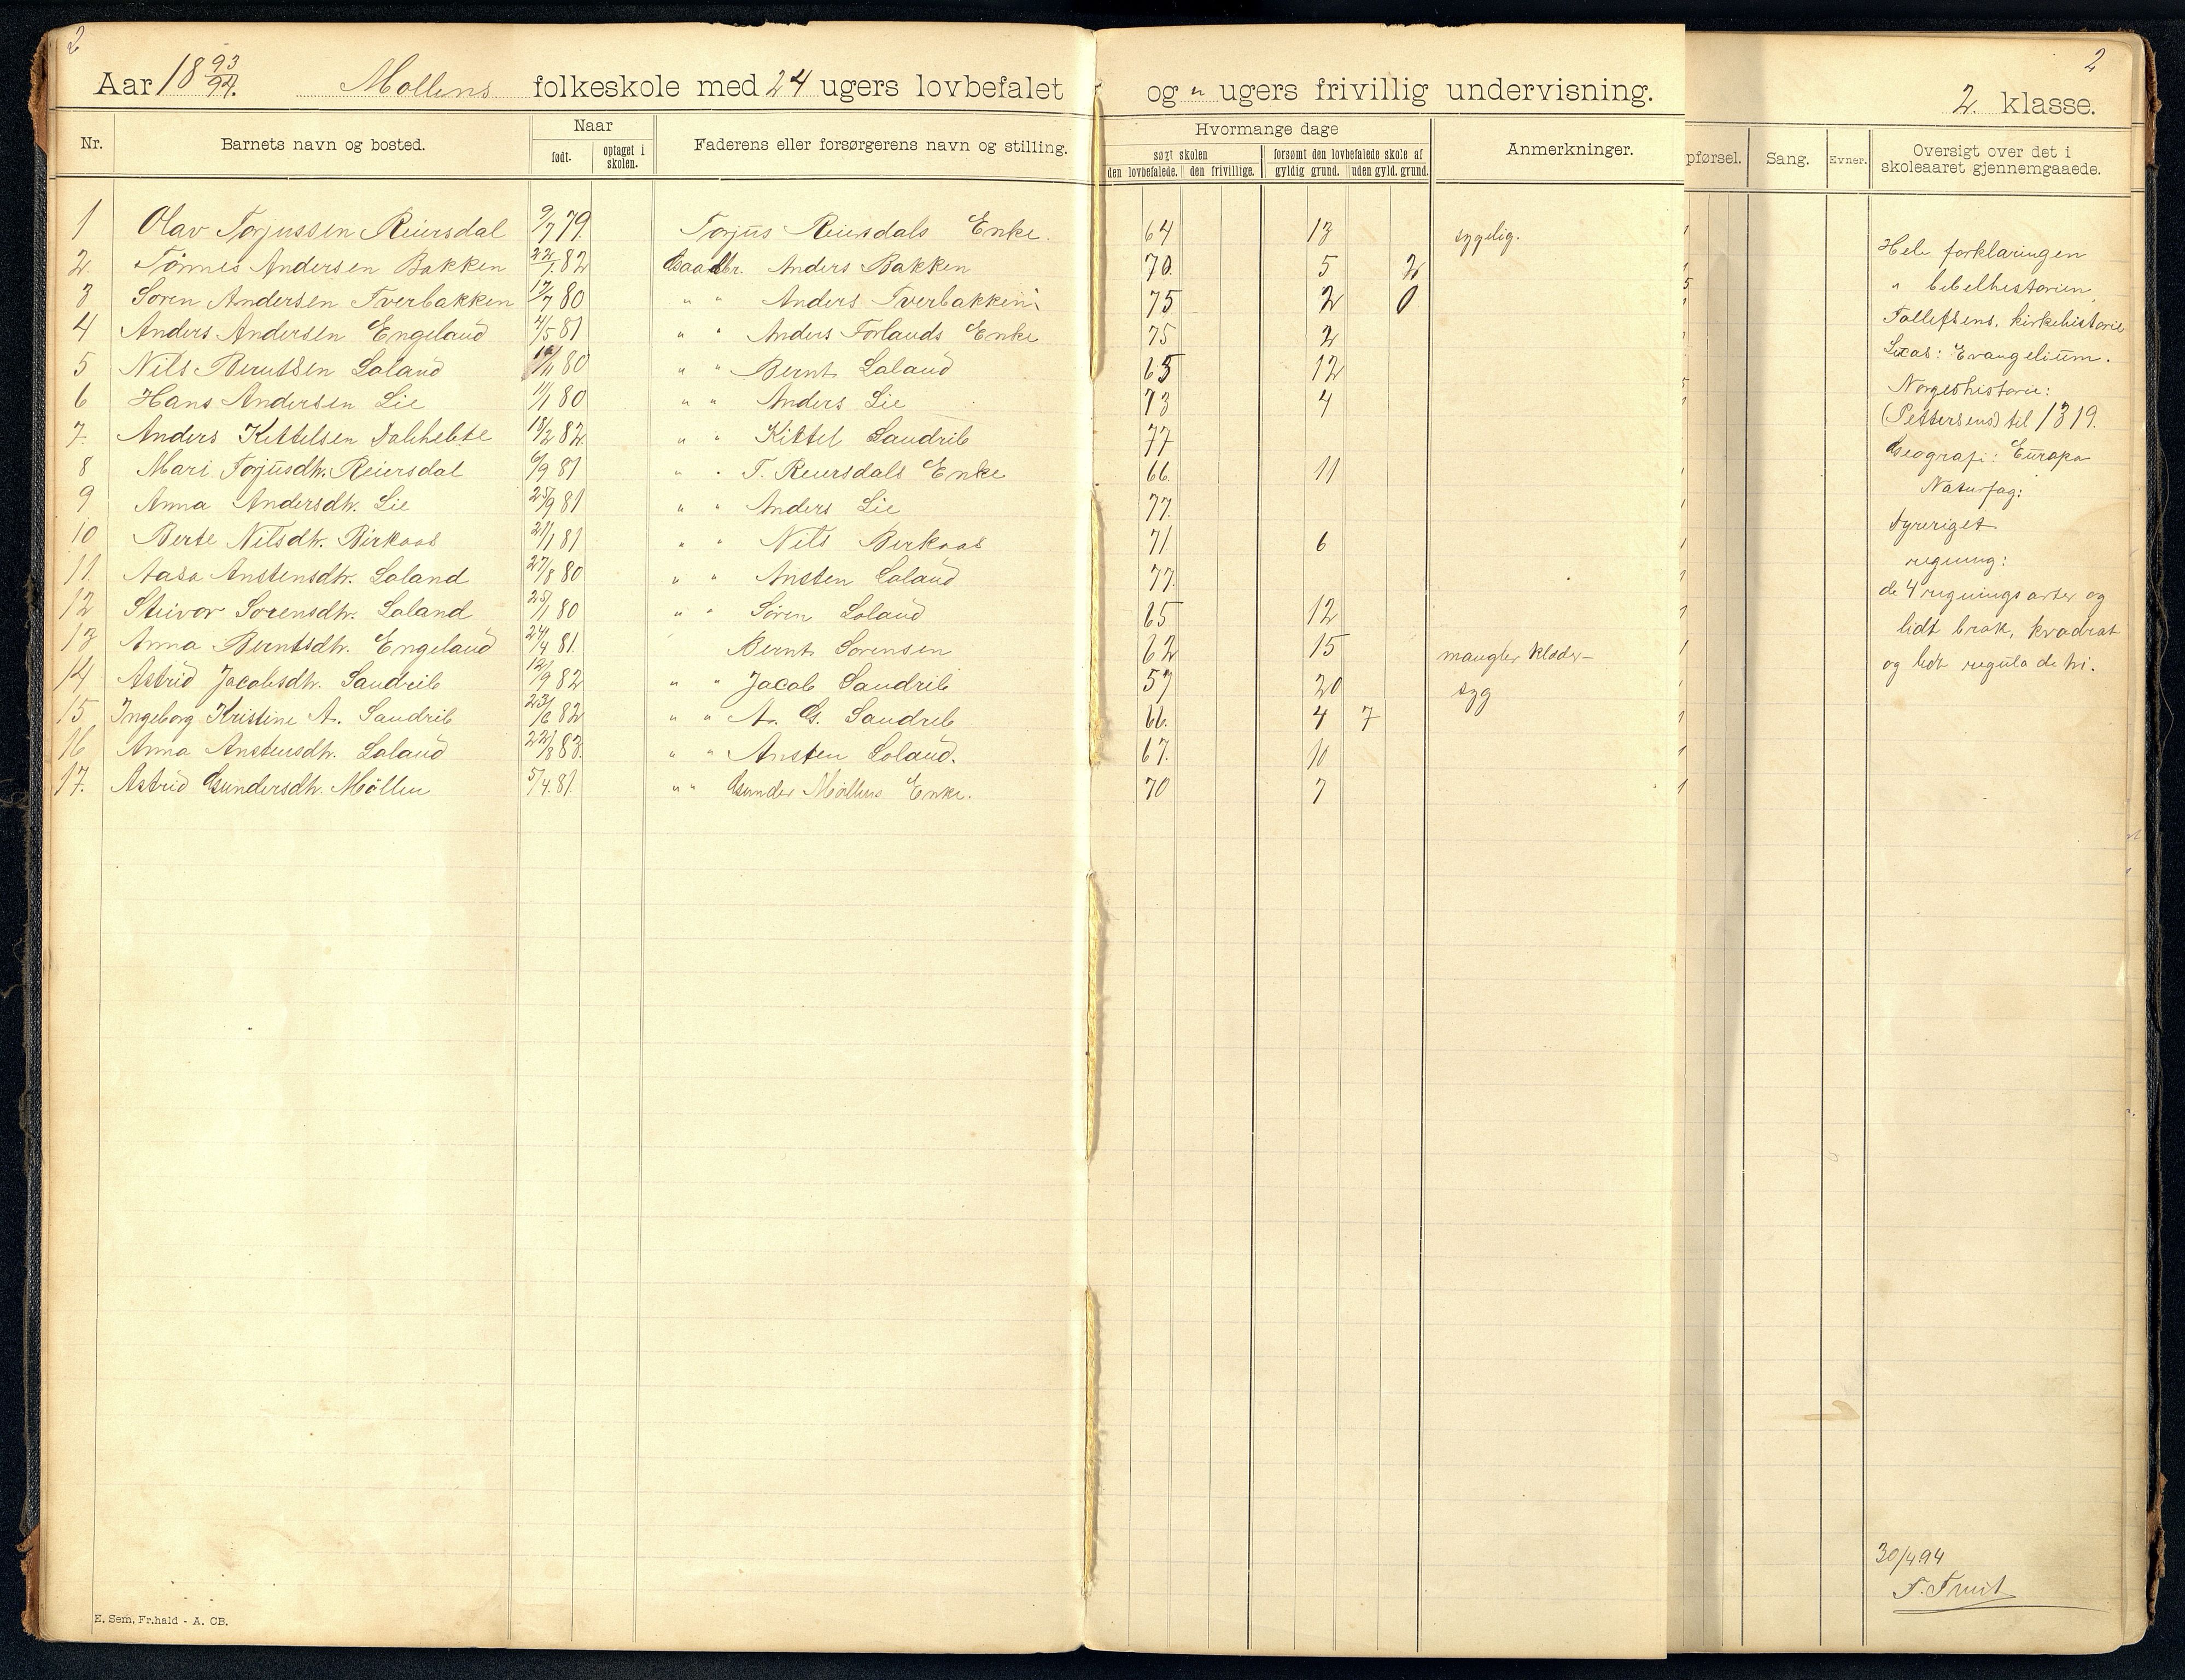 2
2
Aar 18 93/94. Møllens folkeskole med 24 ugers lovbefalet og " ugers frivillig undervisning.
2. klasse.
Nr. Barnets navn og bosted. Naar født. optaget i skolen. Faderens eller forsørgerens navn og stilling. Hvormange dage søgt skolen den lovbefalede. den frivillige. forsømt den lovbefalede skole af gyldig grund. uden gyld. grund. Anmerkninger. pførsel. Sang. Evner. Oversigt over det i skoleaaret gjennemgaaede.
1 Olav Torjussen Reiersdal 9/7 79 Torjus Reiersdals Enke. 64 13 sygelig.
2. Tönnes Andersen Bakken 22/1. 82 Gaadbr. Anders Bakken 70. 5 2
3 Søren Andersen Tverbakken 17/7 80 " " Anders Tverbakken 75 2 0
4 Anders Andersen Engeland 4/5 81 " " Anders Forlands Enke 75 2
5 Nils Berntsen Loland 80 " " Bernt Loland 65 12
6 Hans Andersen Lie 11/1 80 " " Anders Lie 73 4
7. Anders Kittelsen 18/2 82 " " Kittel Sandrib 77
8 Mari Torjusdtr. Reiersdal 6/9 81 " " T. Reiersdals Enke 66. 11
9 Anna Andersdtr. Lie 25/9 81 " " Anders Lie 77.
10 Berte Nilsdtr. Birkaas 21/1 81 " " Nils Berkaas 71 6
11. Aasa Anstensdtr. Loland 27/8 80 " " Ansten Loland 77.
12 Steivor Sørensdtr. Loland 25/1 80 " " Søren Loland 65 12
13 Anna Berntsdtr. Engeland 24/4 81. Bernt Sørensen 62 15 mangler klæder-
14 Astrid Jacobsdtr. Sandrib 12/9 82 " " Jacob Sandrib 57 20 syg
15 Ingeborg Kristine A. Sandrib 23/6 82 " " A. G. Sandrib 66. 4 7
16 Anna Anstensdtr. Loland 22/8 83. " " Ansten Loland. 67. 10
17. Astrid Gundersdtr. Möllen 5/4. 81 " " Gunder Möllens Enke. 70 7
Hele forklaringen
" bibelhistorien
Tollefsens. kirkehistorie
Lucas: Evangelium.
Norgeshistorie:
(Pettersens) til 1319.
Geografi: Europa
Naturfag:
dyreriget
regning:
de 4 regningsarter og
lidt brøk, kvadrat
og lidt regula de tri.
30/4 94
E. Sem, Fr.hald - A. CB.